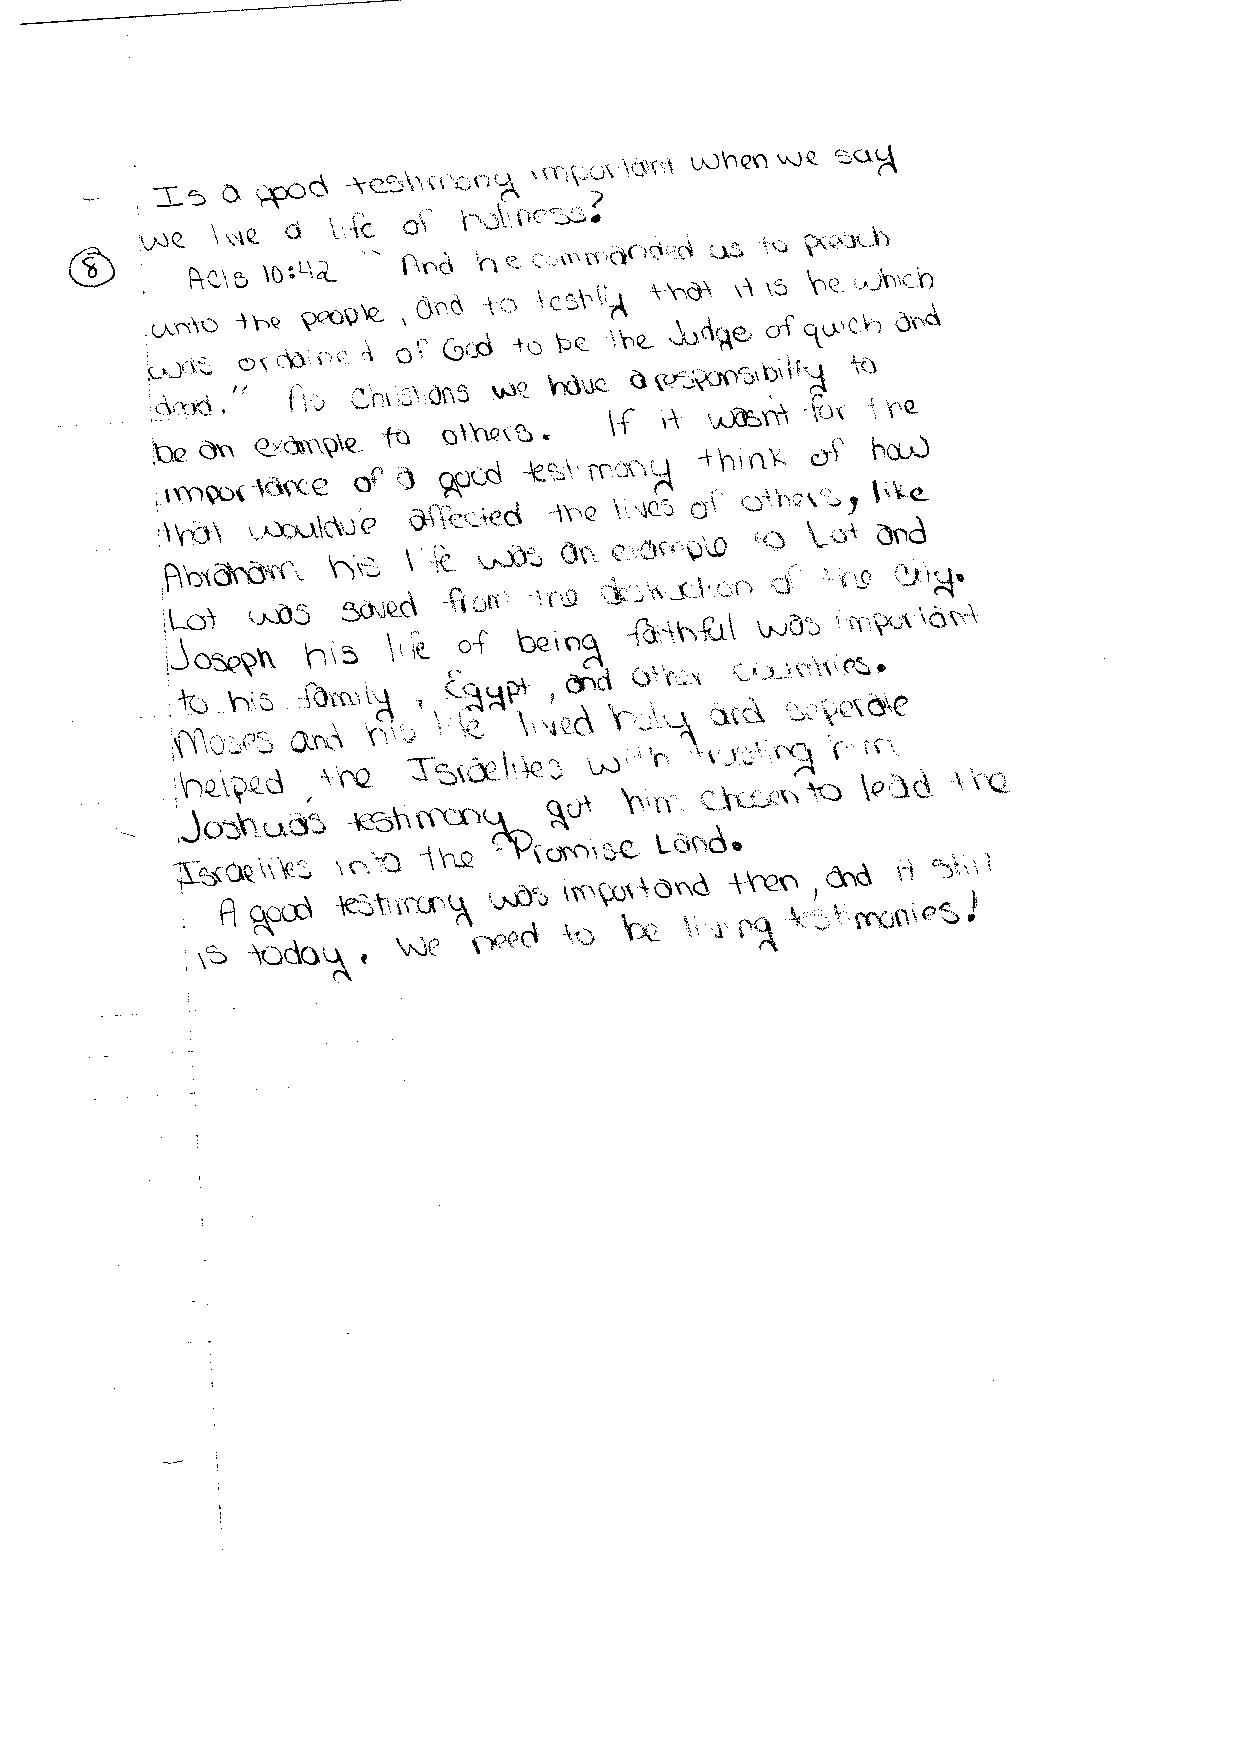 Is a good testimony important when we say
we live a life of holiness?
8
Acts 10:42 "And he commanded us to preach
unto the people, and to testify that it is he which
was ordained of God to be the Judge of quick and
dead." As Christians we have a responsibility to
be an example to others. If it wasn't for the
importance of a good testimony think of how
that would've affected the lives of others, like
Abraham his life was an example to Lot and
Lot was saved from the destruction of the city.
Joseph his life of being faithful was important
to his family, Egypt, and other countries.
Moses and his life lived holy and seperate
helped the Israelites with trusting him
Joshua's testimony got him chosen to lead the
Israelites into the Promise Land.
A good testimony was importand then, and it still
is today. We need to be living testimonies!